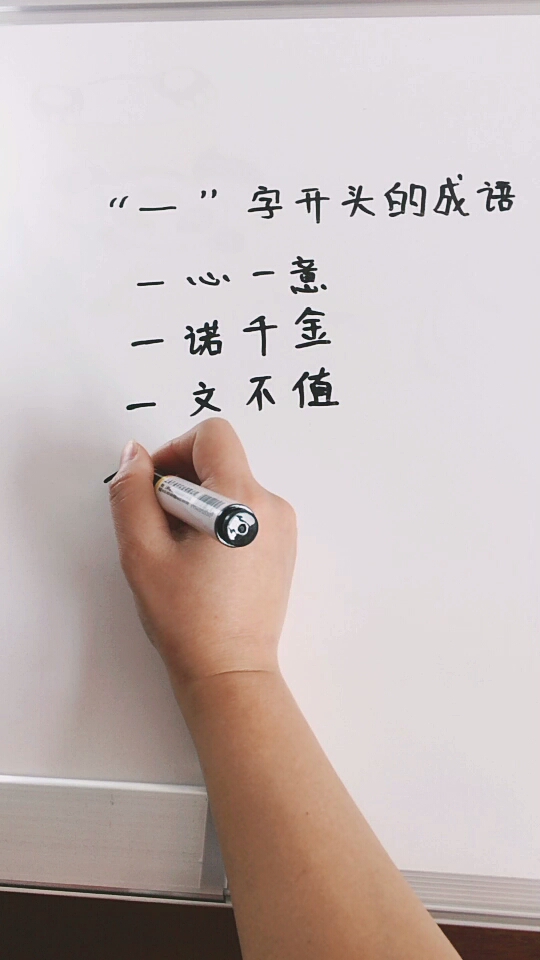 “一”字开头的成语
一心一意
一诺千金
一文不值